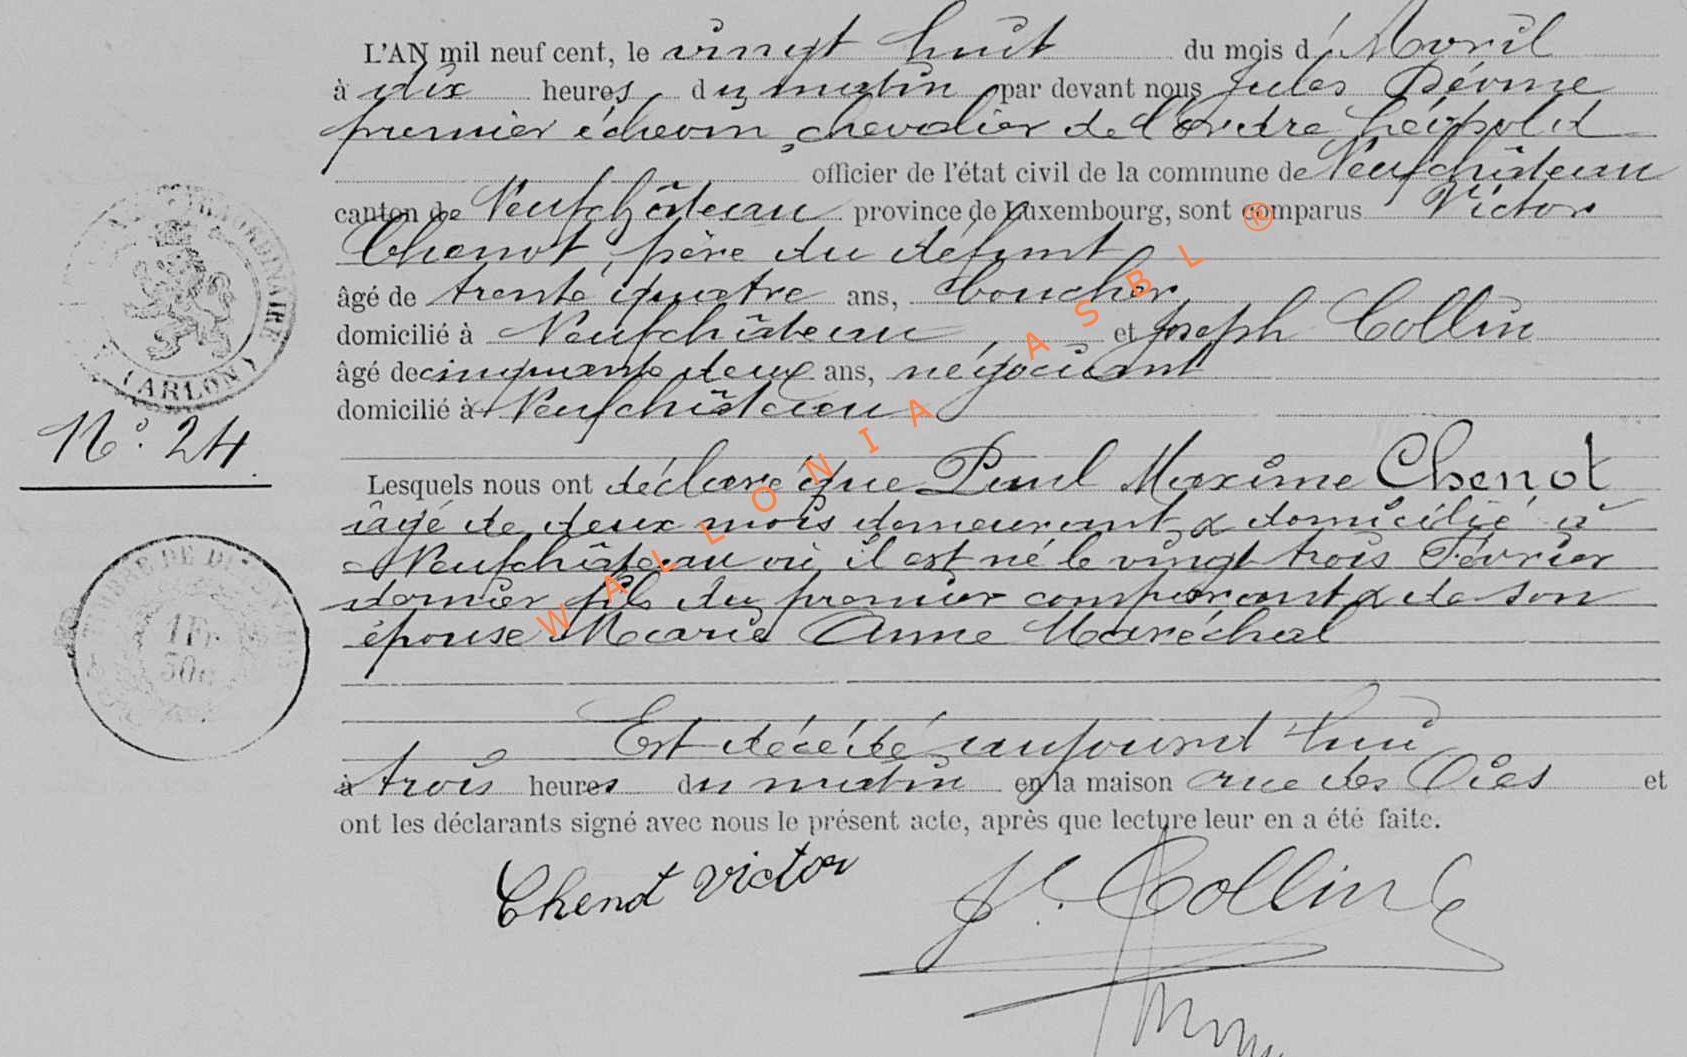 L'AN mil neuf cent, le vingt huit du mois d'Avril
à dix heures du matin par devant nous Jules
premier échevin, chevalier de l'Ordre Léopold
officier de l'état civil de la commune de Neufchâteau
canton de Neufchâteau province de Luxembourg, sont comparus Victor
Chenot, père du défunt
âgé de trente quatre ans, boucher
domicilié à Neufchâteau et Joseph Collin
âgé de cinquante deux ans, négociant
domicilié à Neufchâteau
ARLON
N° 24.
Lesquels nous ont déclaré que Paul Maxime Chenot
âgé de deux mois demeurant & domicilié à
Neufchâteau où il est né le vingt trois Février
dernier fils du premier comparant & de son
épouse Marie Anne Maréchal
1 Fr
50c
Est décédé aujourd'hui
à trois heures du matin en la maison rue des Oies et
ont les déclarants signé avec nous le présent acte, après que lecture leur en a été faite.
Chenot Victor
J. Collin
WALLONIA ASBL ®